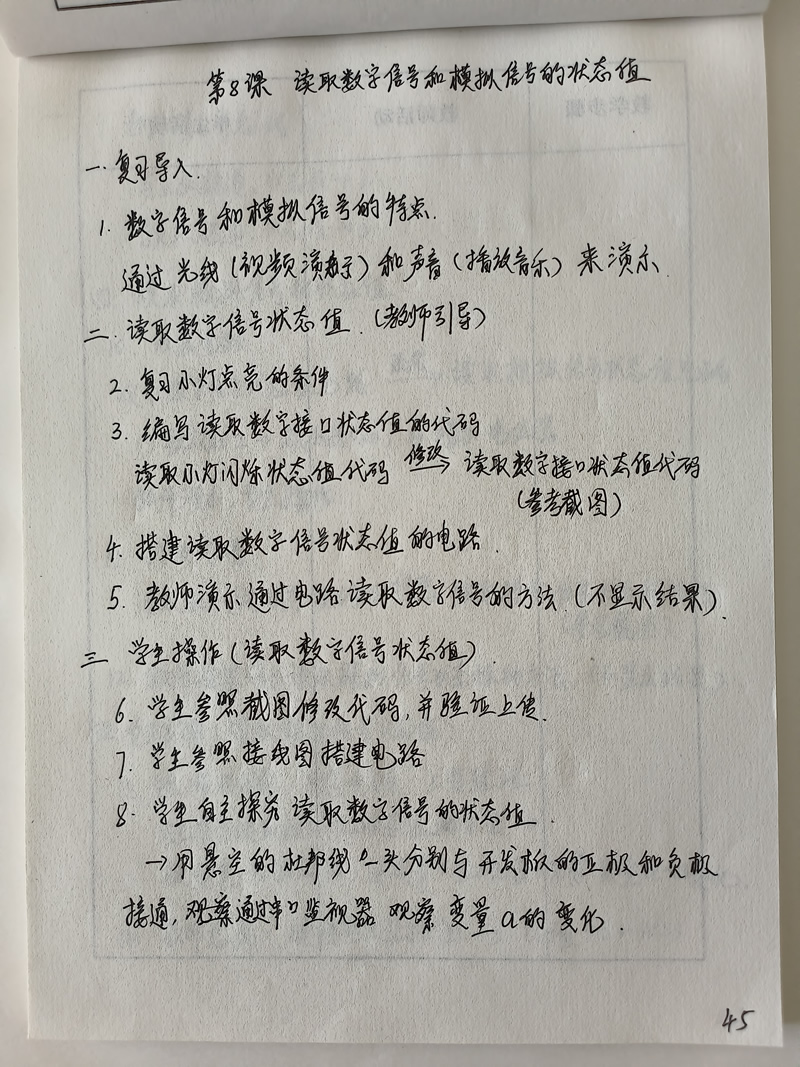 第8课 读取数字信号和模拟信号的状态值
一.复习导入.
1.数字信号和模拟信号的特点.
通过光线(视频演示)和声音(播放音乐)来演示.
二.读取数字信号状态值.(教师引导)
2.复习小灯点亮的条件
3.编写读取数字接口状态值的代码
读取小灯闪烁状态值代码 修改→ 读取数字接口状态值代码
(参考截图)
4.搭建读取数字信号状态值的电路.
5.教师演示通过电路读取数字信号的方法.(不显示结果).
三 学生操作(读取数字信号状态值).
6.学生参照截图修改代码,并验证上传.
7.学生参照接线图搭建电路
8.学生自主探究读取数字信号的状态值.
→用悬空的杜邦线一头分别与开发板的正极和负极
接通,观察通过串口监视器 观察 变量a的变化.
45